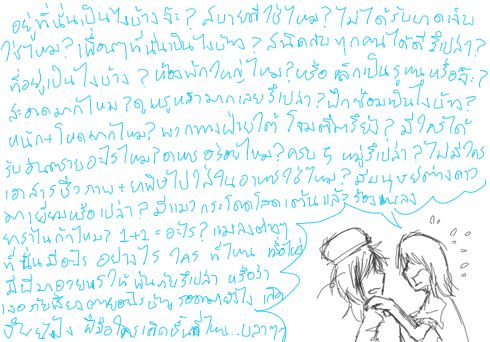 อยู่ที่นั่นเป็นไงบ้างจ๊ะ? สบายดีใช่ไหม? ไม่ได้รับบาดเจ็บ
ใช่ไหม? เพื่อนๆที่นั่นเป็นไงบ้าง? สนิทกับทุกคนได้ดีรึเปล่า?
ที่อยู่เป็นไงบ้าง? ห้องพักใหญ่ไหม? หรือเล็กเป็นรูหนูหรือจ๊ะ?
สะอาดมากไหม? ดูหรูหรามากเลยรึเปล่า? ฝึกซ้อมเป็นไงบ้าง?
หนัก+โหดมากไหม? พวกทางฝ่ายใต้ โจมตีรึยัง? มีใครได้
รับอันตรายอะไรไหม? อาหารอร่อยไหม? ครบ 5 หมู่รึเปล่า? ไม่มีใคร
เอาสารชีวภาพ+ยาพิษไปใส่ในอาหารใช่ไหม? มีมนุษย์ต่างดาว
มาเยี่ยมหรือเปล่า? มีแมวกระโดดโลดเต้นแล้วร้องเพลง
ไหม? 1+2 = อะไร? แมลงต่างๆ
ที่นั่นมีอะไร อย่างไร ใคร ที่ไหน เมื่อไหร่
รึเปล่า หรือว่า
ยังไง
ที่ไหน...บลาๆๆ